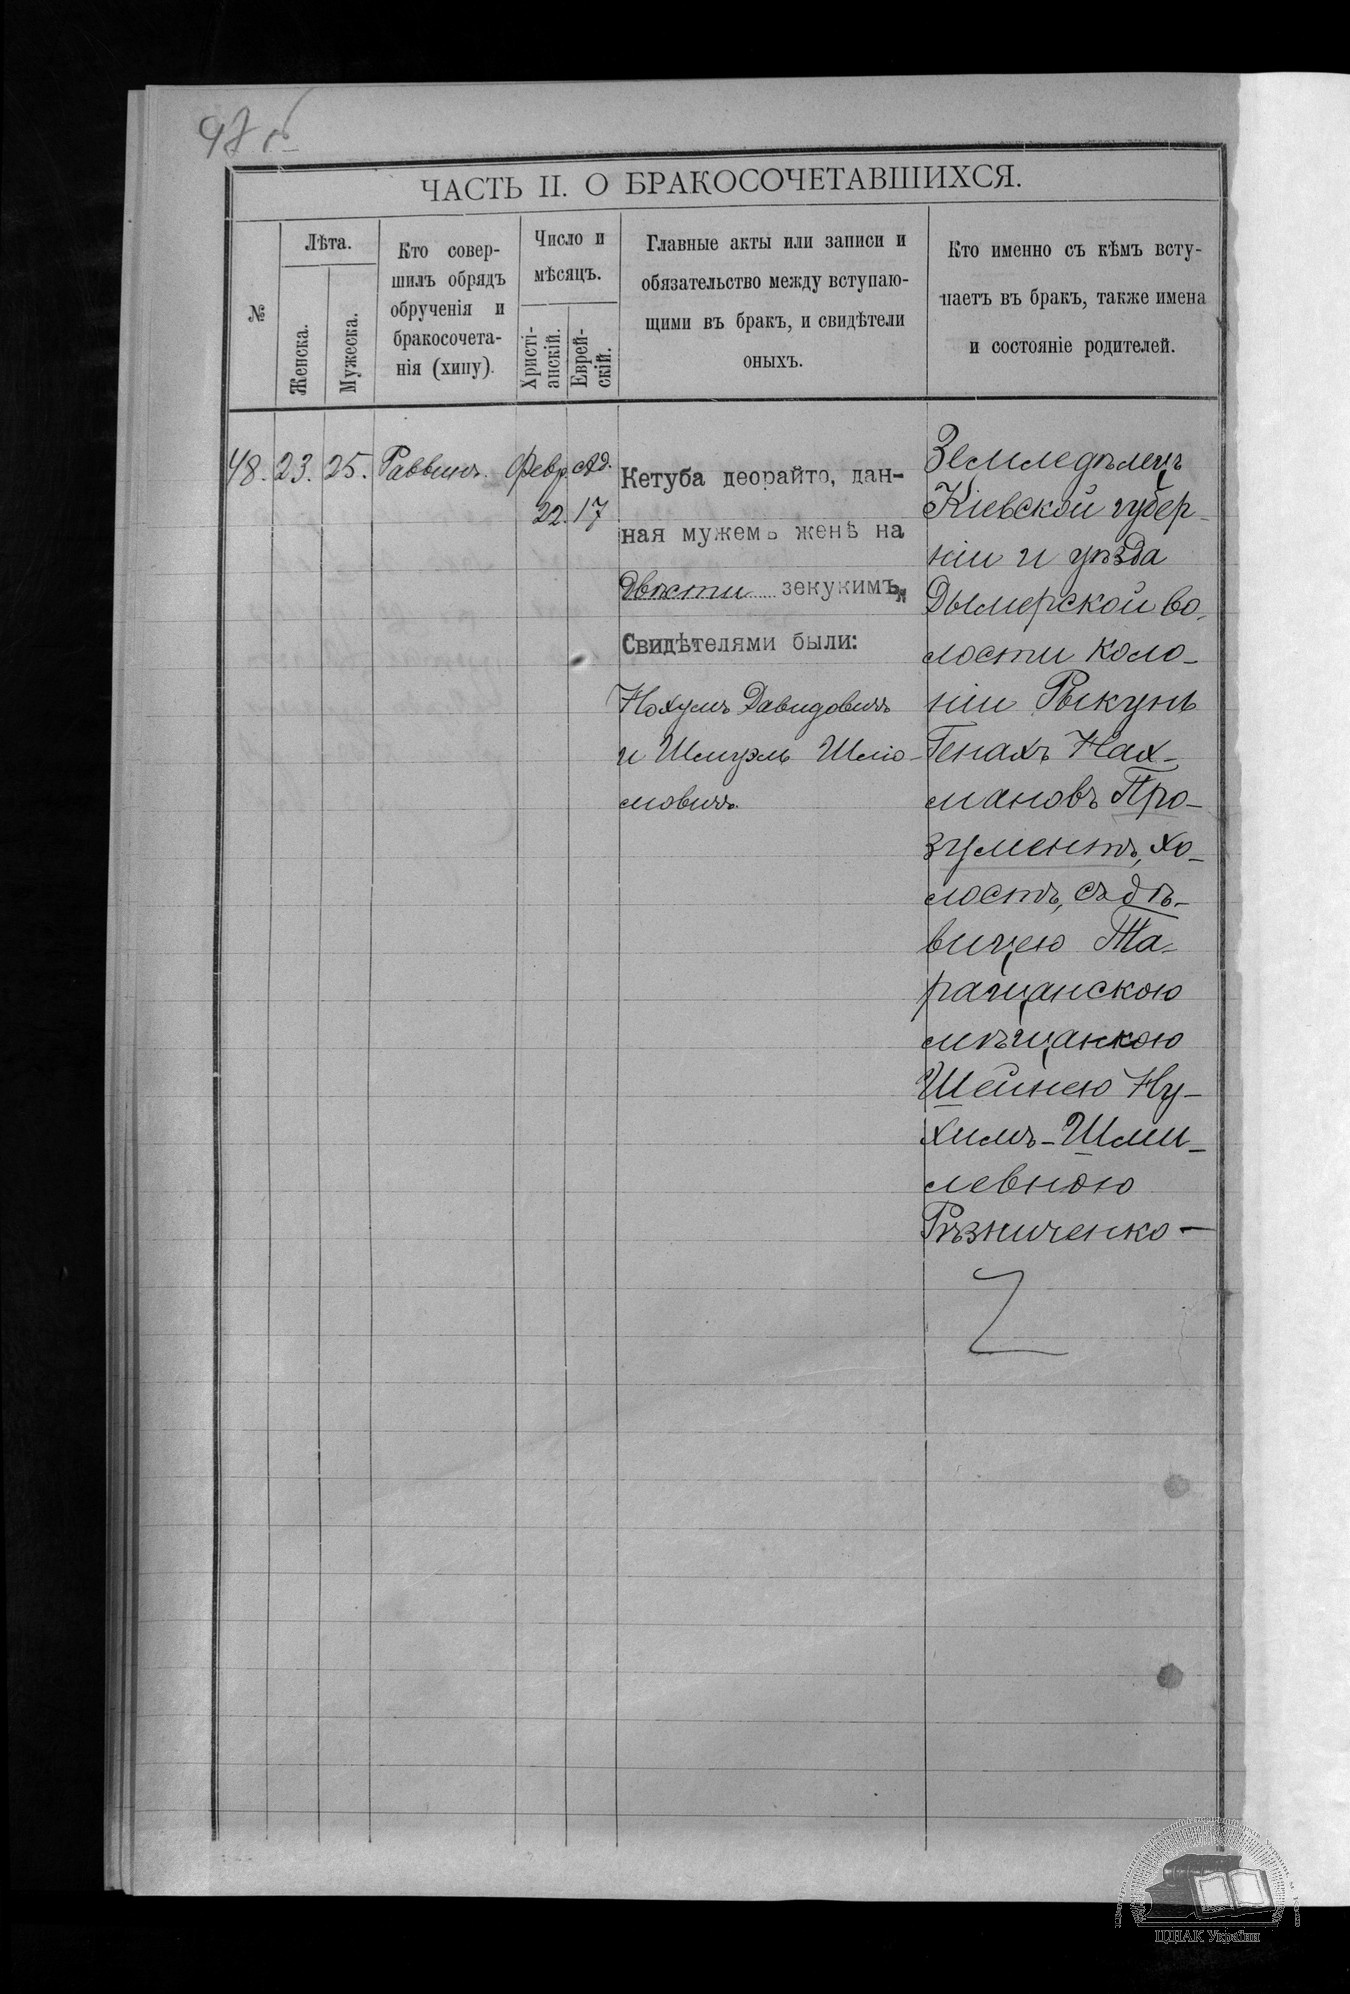 ЧАСТЬ II. О БРАКОСОЧЕТАВШИХСЯ.
№
Лѣта.
Женска.
Мужеска.
Кто совер-
шилъ обрядъ
обрученія и
бракосочета-
нія (хипу).
Число и
мѣсяцъ.
Христі-
анскій.
Еврей-
скій.
Главные акты или записи и
обязательство между вступаю-
щими въ бракъ, и свидѣтели
оныхъ.
Кто именно съ кѣмъ всту-
паетъ въ бракъ, также имена
и состояніе родителей.
48. 23. 25. Раввинъ. Февр. Ад.
22. 17
Кетуба деорайто, дан-
ная мужемъ женѣ на
двѣсти зекукимъ
Свидѣтелями были:
Нохумъ Давидовичъ
и Шмуэль Шлио-
мовичъ.
Земледѣлецъ
Кіевской губер-
ніи и уѣзда
Дымерской во-
лости коло-
ніи Рыкунь
Генахъ Нах-
мановъ Про-
зументъ, хо-
лостъ, съ дѣ-
вицею Та-
ращанскою
мѣщанкою
Шейнею Ну-
химъ-Шми-
левною
Рѣзниченко —
ЦДІАК України